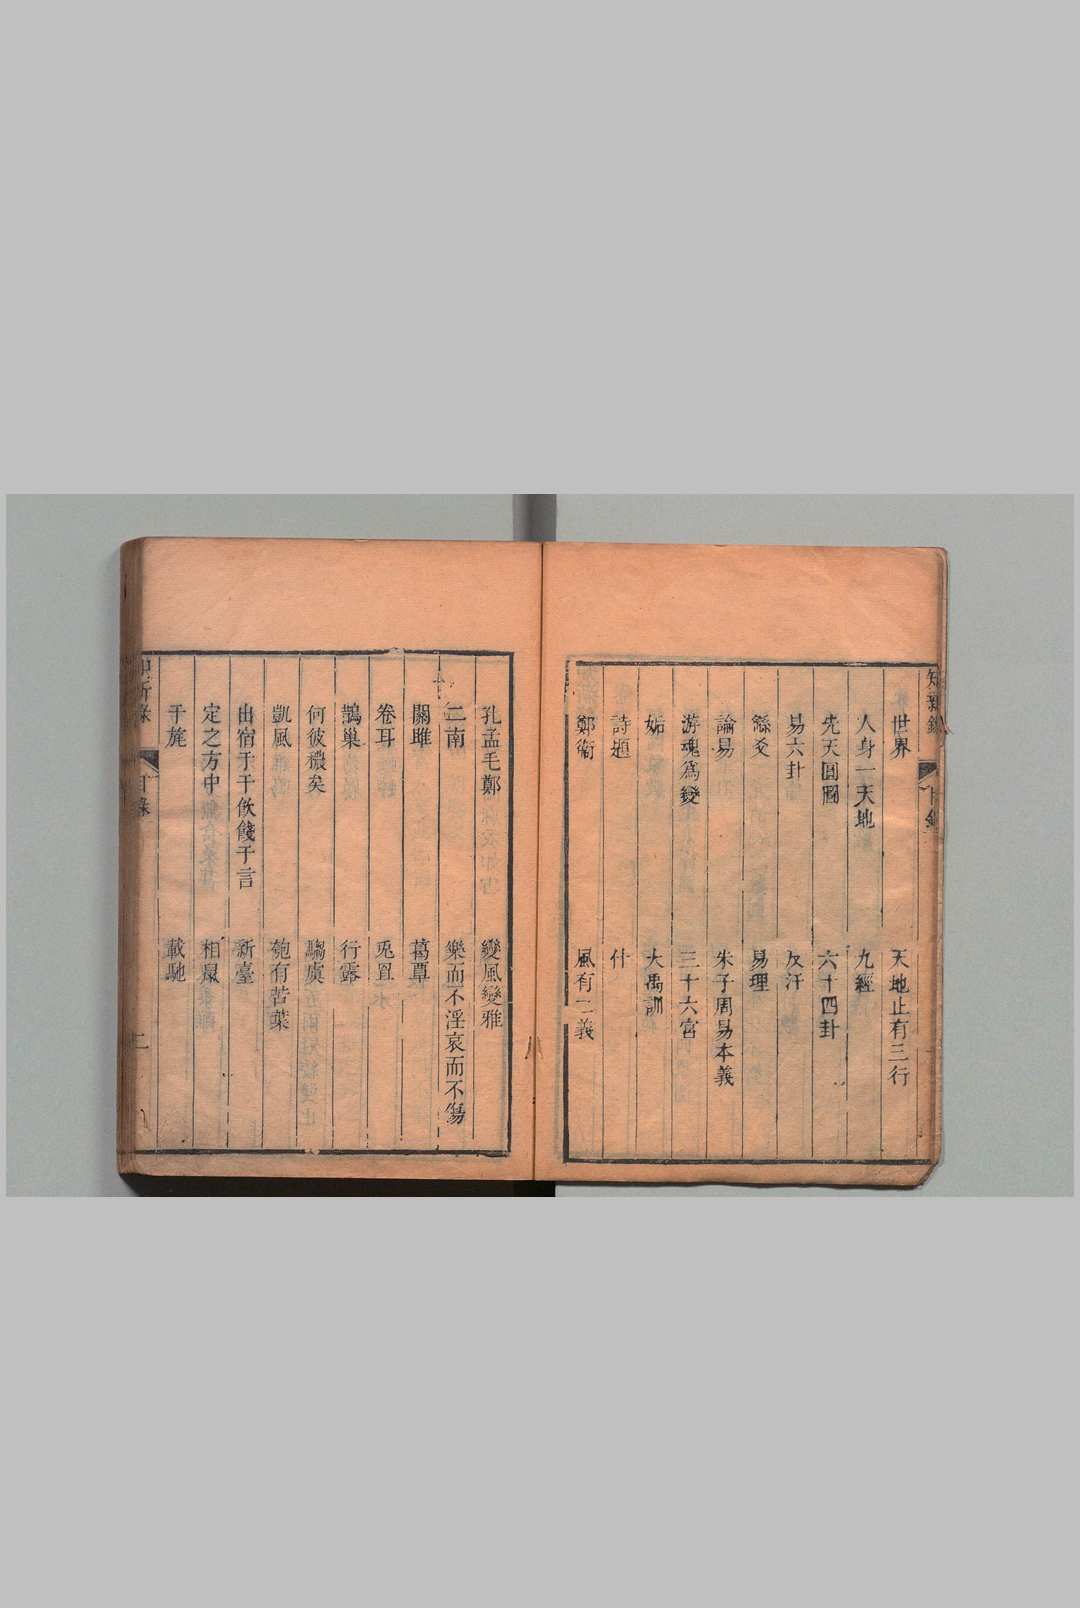 知新錄 目錄
世界 天地止有三行
人身一天地 九經
先天圓圖 六十四卦
易六卦 反汗
繇爻 易理
論易 朱子周易本義
游魂為變 三十六宮
姤 大禹訓
詩題 什
鄭衞 風有二義
孔孟毛鄭 變風變雅
二南 樂而不淫哀而不傷
關雎 葛覃
卷耳 兎罝
鵲巢 行露
何彼穠矣 騶虞
凱風 匏有苦葉
出宿于干飲餞于言 新臺
定之方中 相鼠
干旄 載馳
知新錄 目錄 二